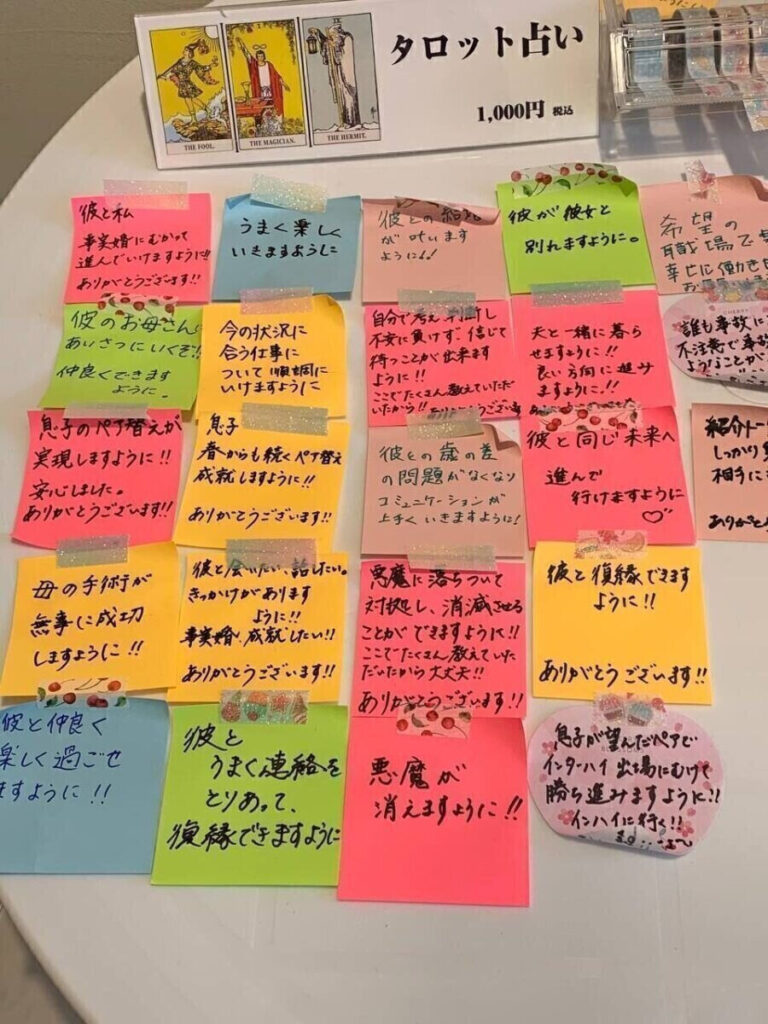 THE FOOL.
THE MAGICIAN.
THE HERMIT.
タロット占い
1,000円 税込
彼と私
事実婚にむかって
進んでいけますように!!
ありがとうございます!!
うまく楽しく
いきますように
彼との結婚
が叶います
ように!!
彼が彼女と
別れますように。
希望の
職場で
幸せに働き
彼のお母さんに
あいさつにいくぞ!!
仲良くできます
ように。
今の状況に
合う仕事に
ついて順調に
いけますように
自分で考え 判断し
不安に負けず、信じて
待つことが出来ます
ように!!
ここでたくさん教えていただ
いたから!! ありがとうございます
夫と一緒に暮ら
せますように!!
良い方向に進み
ますように!!
誰も事故に
不注意で事故
ようなことが
息子のペア替えが
実現しますように!!
安心しました。
ありがとうございます!!
息子
春からも続くペア替え
成就しますように!!
ありがとうございます!!
彼との歳の差
の問題がなくなり
コミュニケーションが
上手くいきますように!
彼と同じ未来へ
進んで
行けますように
♡
紹介トー
しっかり
相手に
ありがと
母の手術が
無事に成功
しますように!!
彼と会いたい、話したい。
きっかけがあります
ように!!
事実婚、成就したい!!
ありがとうございます!!
悪魔に落ちついて
対処し、消滅させる
ことができますように!!
ここでたくさん教えていた
だいたから大丈夫!!
ありがとうございます!!
彼と復縁できます
ように!!
ありがとうございます!!
彼と仲良く
楽しく過ごせ
ますように!!
彼と
うまく連絡を
とりあって、
復縁できますように
悪魔が
消えますように!!
息子が望んだペアで
インターハイ出場にむけて
勝ち進みますように!!
インハイに行く!!